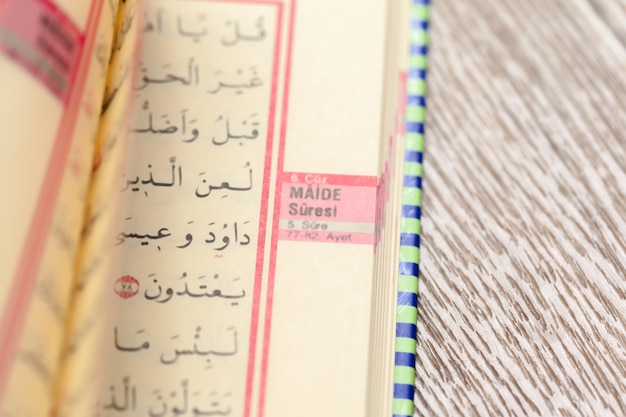 قُلْ يَٓا
غَيْرَ الْحَقِّ
قَبْلُ وَاَضَلُّوا
لُعِنَ الَّذٖينَ
دَاوُ۫دَ وَعٖيسَى
يَعْتَدُونَ ﴿٧٨﴾
لَبِئْسَ مَا
يَتَوَلَّوْنَ
6. Cüz
MÂİDE
Sûresi
5. Sûre
77-82. Ayet